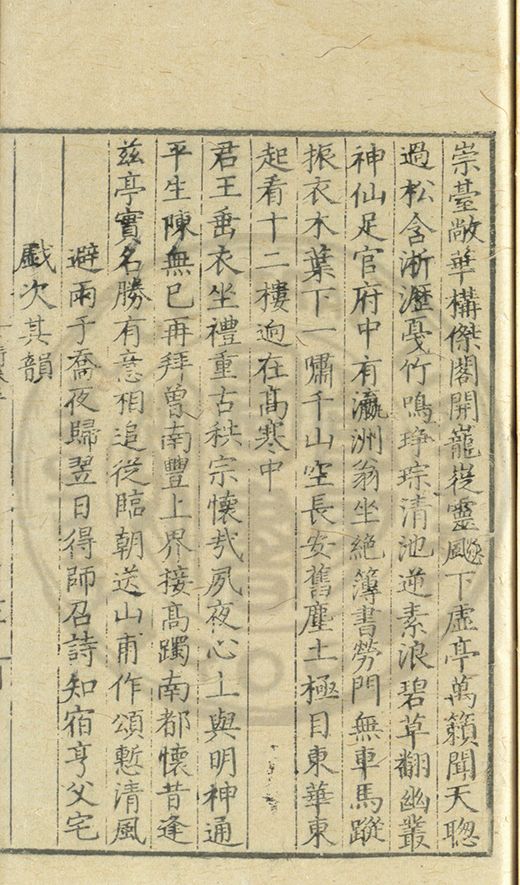 崇臺敞華構傑閣開巃嵷靈飈下虛亭萬籟聞天聦
過松含淅瀝戞竹鳴琤琮清池逆素浪碧草翻幽叢
神仙足官府中有瀛洲翁坐絶簿書勞門無車馬蹤
振衣木葉下一嘯千山空長安舊塵土極目東華東
起看十二樓逈在髙寒中
君王垂衣坐禮重古秩宗懷㢤夙夜心上與明神通
平生陳無已再拜曾南豐上界接髙躅南都懷昔逢
兹亭實名勝有意相追從臨朝送山甫作頌慙清風
避雨于喬夜歸翌日得師召詩知宿亨父宅
戱次其韻